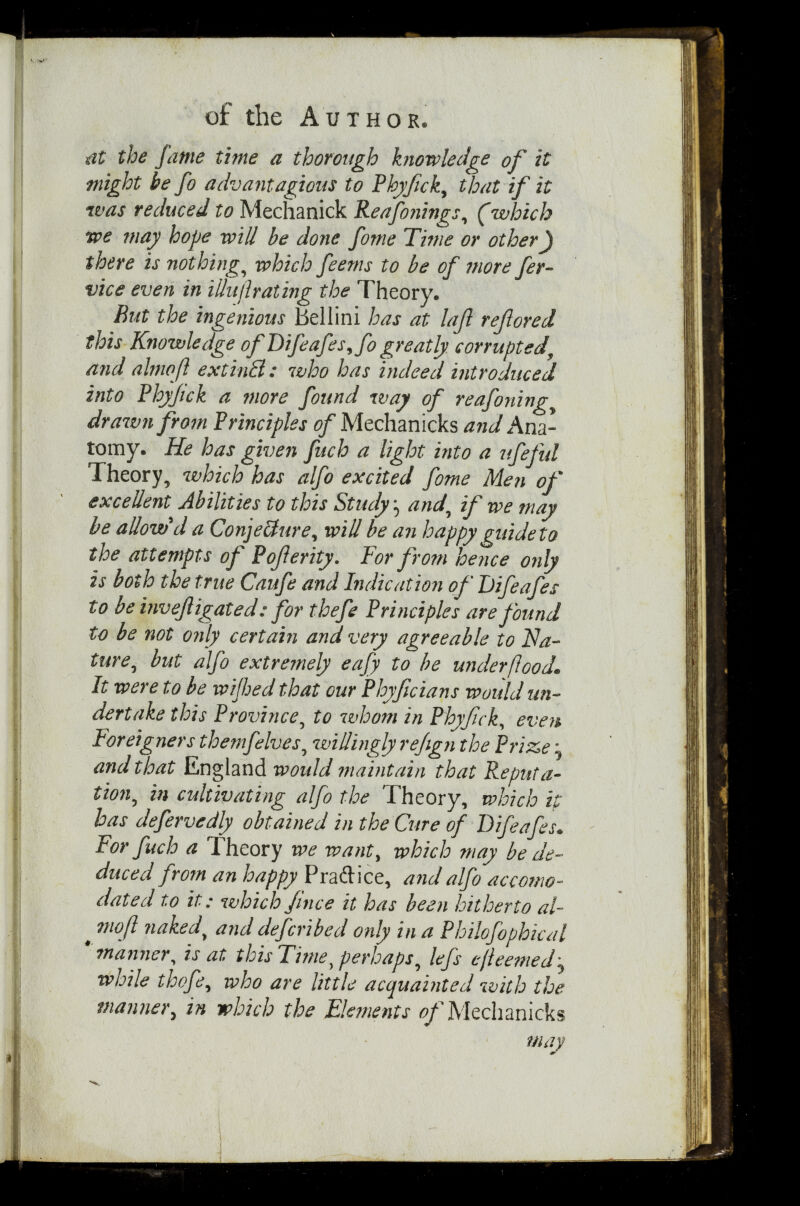 of the AUTHOR.
at the ſame time a thorough knowledge of it
might be ſo advantagious to Phyſick, that if it
was reduced to Mechanick Reaſonings, (which
we may hope will be done ſome Time or other)
there is nothing, which ſeems to be of more ſer-
vice even in illuſtrating the Theory.
But the ingenious Bellini has at laſt reſtored
this Knowledge of Diſeaſes, ſo greatly corrupted,
and almoſt extinct: who has indeed introduced
into Phyſick a more ſound way of reaſoning,
drawn from Principles of Mechanicks and Ana-
tomy. He has given ſuch a light into a uſeful
Theory, which has alſo excited ſome Men of
excellent Abilities to this Study; and, if we may
be allow'd a Conjecture, will be an happy guide to
the attempts of Poſterity. For from hence only
is both the true Cauſe and Indication of Diſeaſes
to be inveſtigated: for theſe Principles are found
to be not only certain and very agreeable to Na-
ture, but alſo extremely eaſy to be underſtood.
It were to be wiſhed that our Phyſicians would un-
dertake this Province, to whom in Phyſick, even
Foreigners themſelves, willingly reſign the Prize;
and that England would maintain that Reputa-
tion, in cultivating alſo the Theory, which it
has deſervedly obtained in the Cure of Diſeaſes.
For ſuch a Theory we want, which may be de-
duced from an happy Practice, and alſo accomo-
dated to it: which ſince it has been hitherto al-
moſt naked, and deſcribed only in a Philoſophical
manner, is at this Time, perhaps, leſs eſteemed;
while thoſe, who are little acquainted with the
manner, in which the Elements of Mechanicks
may